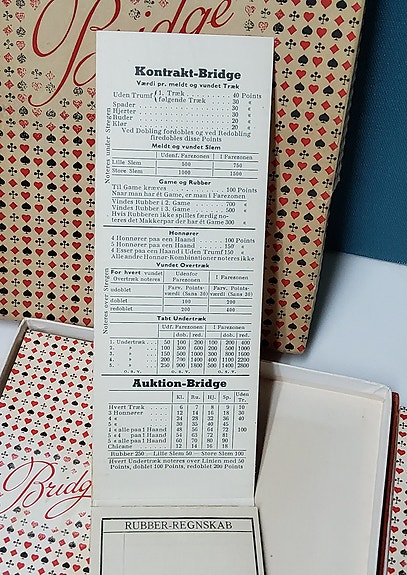 Bridge
Kontrakt-Bridge
Værdi pr. meldt og vundet Træk
Uden Trumf { 1. Træk . . . . 40 Points
følgende Træk . . 30 «
Spader . . . 30 «
Hjerter . . . 30 «
Ruder . . . 20 «
Klør . . . 20 «
Ved Dobling fordobles og ved Redobling
firedobles disse Points
Meldt og vundet Slem
Udenf. Farezonen I Farezonen
Lille Slem 500 750
Store Slem 1000 1500
Noteres under Stregen
Game og Rubber
Til Game kræves . . . 100 Points
Naar man har ét Game, er man i Farezonen
Vindes Rubber i 2. Game . . . 700 «
Vindes Rubber i 3. Game . . . 500 «
Hvis Rubberen ikke spilles færdig no-
teres det Makkerpar der har ét Game 300 «
Honnører
4 Honnører paa en Haand . . 100 Points
5 Honnører paa en Haand . . 150 «
4 Esser paa en Haand i Uden Trumf 150 «
Alle andre Honnør-Kombinationer noteres ikke
Vundet Overtræk
For hvert vundet Overtræk noteres Udenfor Farezonen I Farezonen
udoblet Farv. Points-værdi (Sans 30) Farv. Points-værdi (Sans 30)
doblet 100 200
redoblet 200 400
Noteres over Stregen
Tabt Undertræk
Udf. Farezonen I Farezonen
dob. red. dob. red.
1. Undertræk . . 50 100 200 100 200 400
2. » . . 100 300 600 200 500 1000
3. » . . 150 500 1000 300 800 1600
4. » . . 200 700 1400 400 1100 2200
5. » . . 250 900 1800 500 1400 2800
o. s. v. o. s. v.
Auktion-Bridge
Kl. Ru. Hj. Sp. Uden Tr.
Hvert Træk . . . 6 7 8 9 10
3 Honnører . . . 12 14 16 18 30
4 « . . . 24 28 32 36 40
5 « . . . 30 35 40 45
4 « alle paa 1 Haand 48 56 64 72 100
5 « 4 paa 1 Haand 54 63 72 81
5 « alle paa 1 Haand 60 70 80 90
Chicane . . . 12 14 16 18
Rubber 250 — Lille Slem 50 — Store Slem 100
Hvert Undertræk noteres over Linien med 50
Points, doblet 100 Points, redoblet 200 Points
RUBBER-REGNSKAB
Bridge